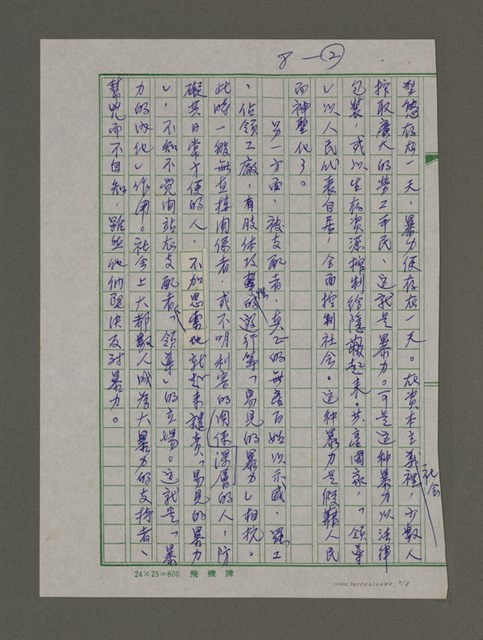 8—②
型態存在一天，暴力便存在一天。在資本主義社會裡，少數人
搾取廣大的勞工平民，這就是暴力。可是這種暴力以法律
包裝，或以生存資源控制給隱藏起來。共產國家，「領導
」以人民代表自居，全面控制社會。這種暴力是假藉人民
而神聖化了。
另一方面，被支配者，真正的無產百姓以示威、罷工
、佔領工廠，有肢體攻擊性的遊行等「易見的暴力」相抗。
此時一般無直接關係者，或不明利害的關係深層的人，防
礙其日常方便的人，不加思索他就起來譴責「易見的暴力
」，不知不覺間站在支配者（領導）的立場。這就是「暴
力的內化」作用。社會上大都數人成為大暴力的支持者、
幫兇而不自知，雖然他們堅決反對暴力。
24×25=600 飛機牌